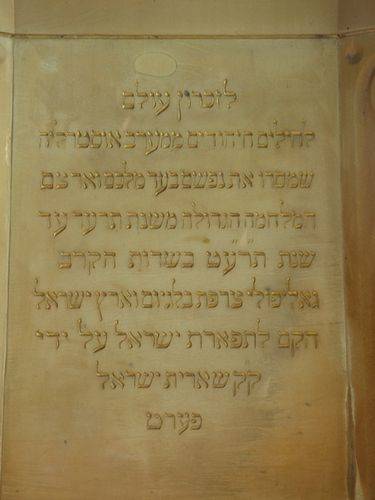 לזכרון עולם
לחילים היהודים ממערב אוסטרליה
שמסרו את נפשם בעד מלכם וארצם
המלחמה הגדולה משנת תרעד עד
שנת תרע״ט בשדות הקרב
גאליפולי צרפת בלגיום וארץ ישראל
הקם לתפארת ישראל על ידי
קק שארית ישראל
פערט